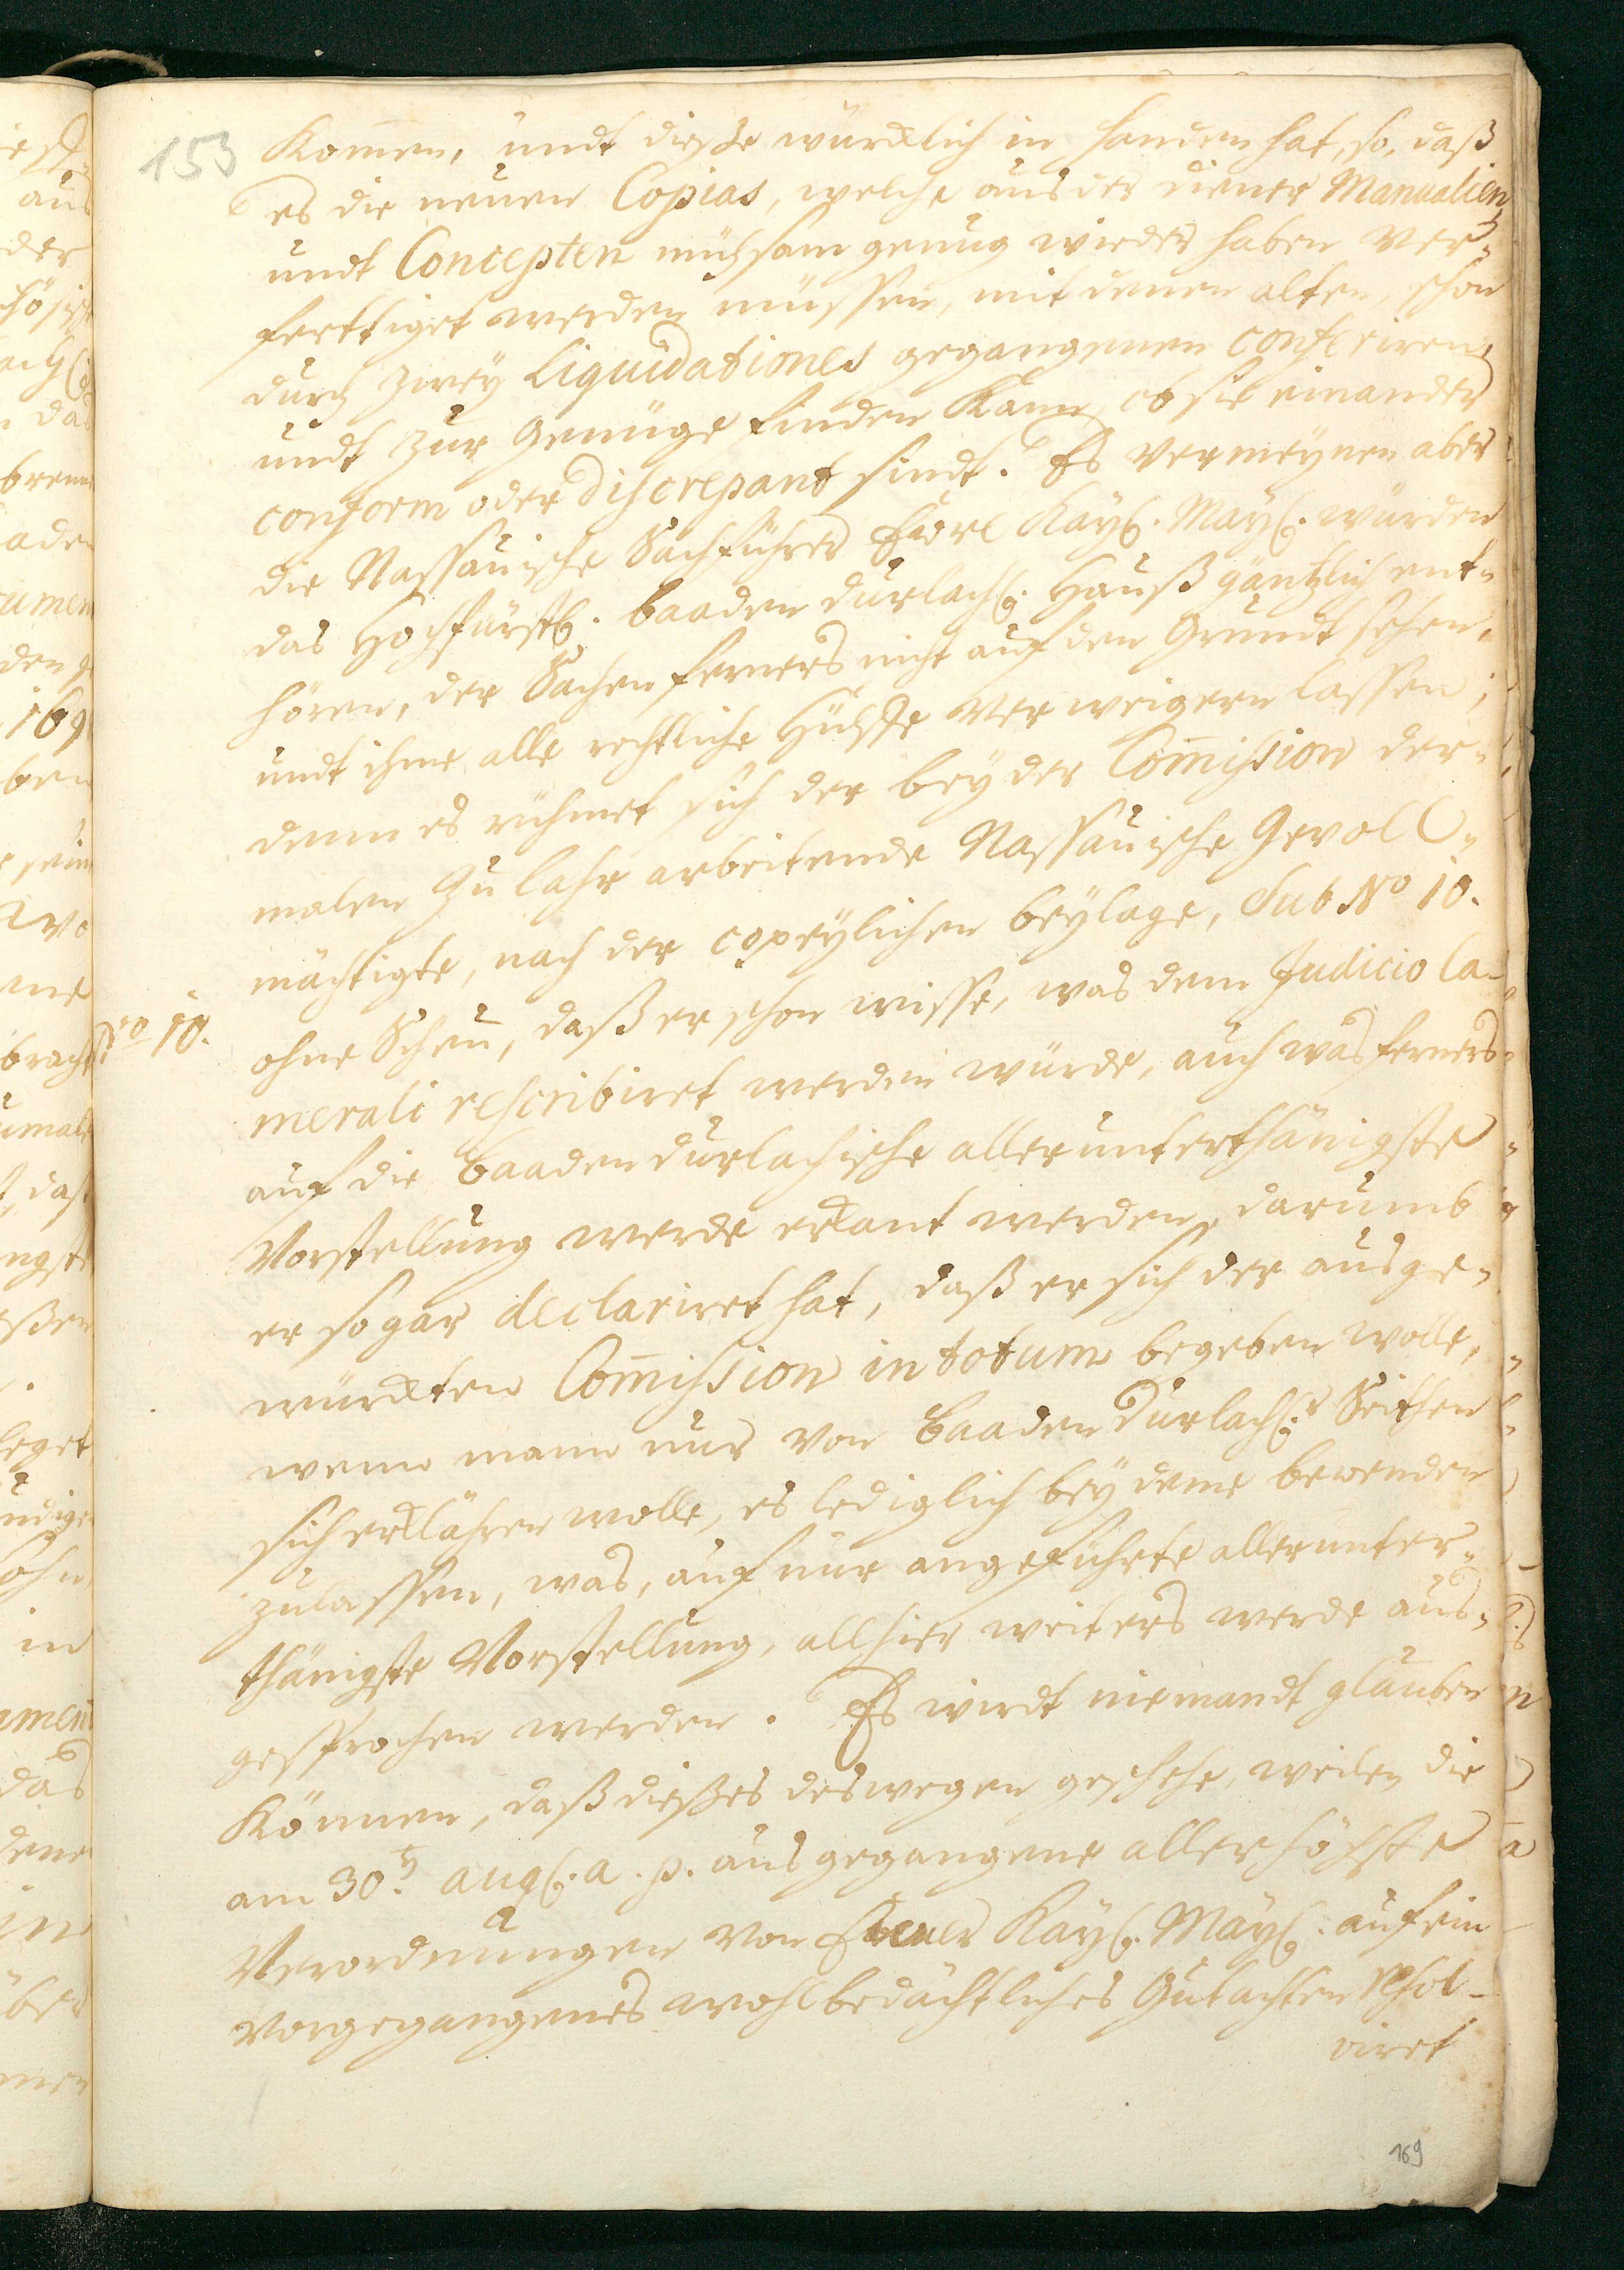 153
Kom̄en, undt dieße würcklich in handen hat, so, daß
es die neuen Copias, welche aus der diener Manualien
undt Concepten mühsam genug wieder haben ver-
ferttiget werden müssen, mit denen alten, schon
durch zweÿ Liquidationes gegangenen conferiren,
undt zur Genüge finden kann, ob sie einander
conform oder discrepant sindt. Es vermeÿnen aber
die Nassauische Sachführer Eürl Kaÿl. Maÿl. würden
das Hochfürstl. Baaden Durlachl. Hauß gäntzlich ent-
hören, der Sachen ferners nicht auf den Grundt sehen,
undt ihme alle rechtliche Hülffe verweigern lassen;
denn es rühmet sich der beÿ der Com̄ission der-
malen zu Lahr arbeitende Nassauische Gevoll-
mächtigte, nach der copeÿlichen beÿlage, sub No 10.
No 10.
ohne Scheu, daß er schon wisse, was dem Judicio Ca-
merali rescribiret werden würde, auch was ferners
auf die Baaden Durlachische allerunterthänigste
Vorstellung werde erkant werden, darumb
er sogar declariret hat, daß er sich der ausge-
würckten Com̄ission in totum begeben wolle,
wenn mann nur von Baaden Durlachl.r Seithen
sich erklähren wolle, es lediglich beÿ deme bewenden
zulassen, was, auf nur angeführte allerunter-
thänigste Vorstellung, allhier weiters werde aus-
gesprochen werden. Es wirdt niemandt glauben
Können, daß dießes deswegen geschehe, weilen die
am 30.t Augl. a. p. ausgegangene allerhöchste
Verordnungen von Eurer Kaÿl. Maÿl. auf ein
vorgegangenes wohlbedächtliches Gutachten resol-
viret
169